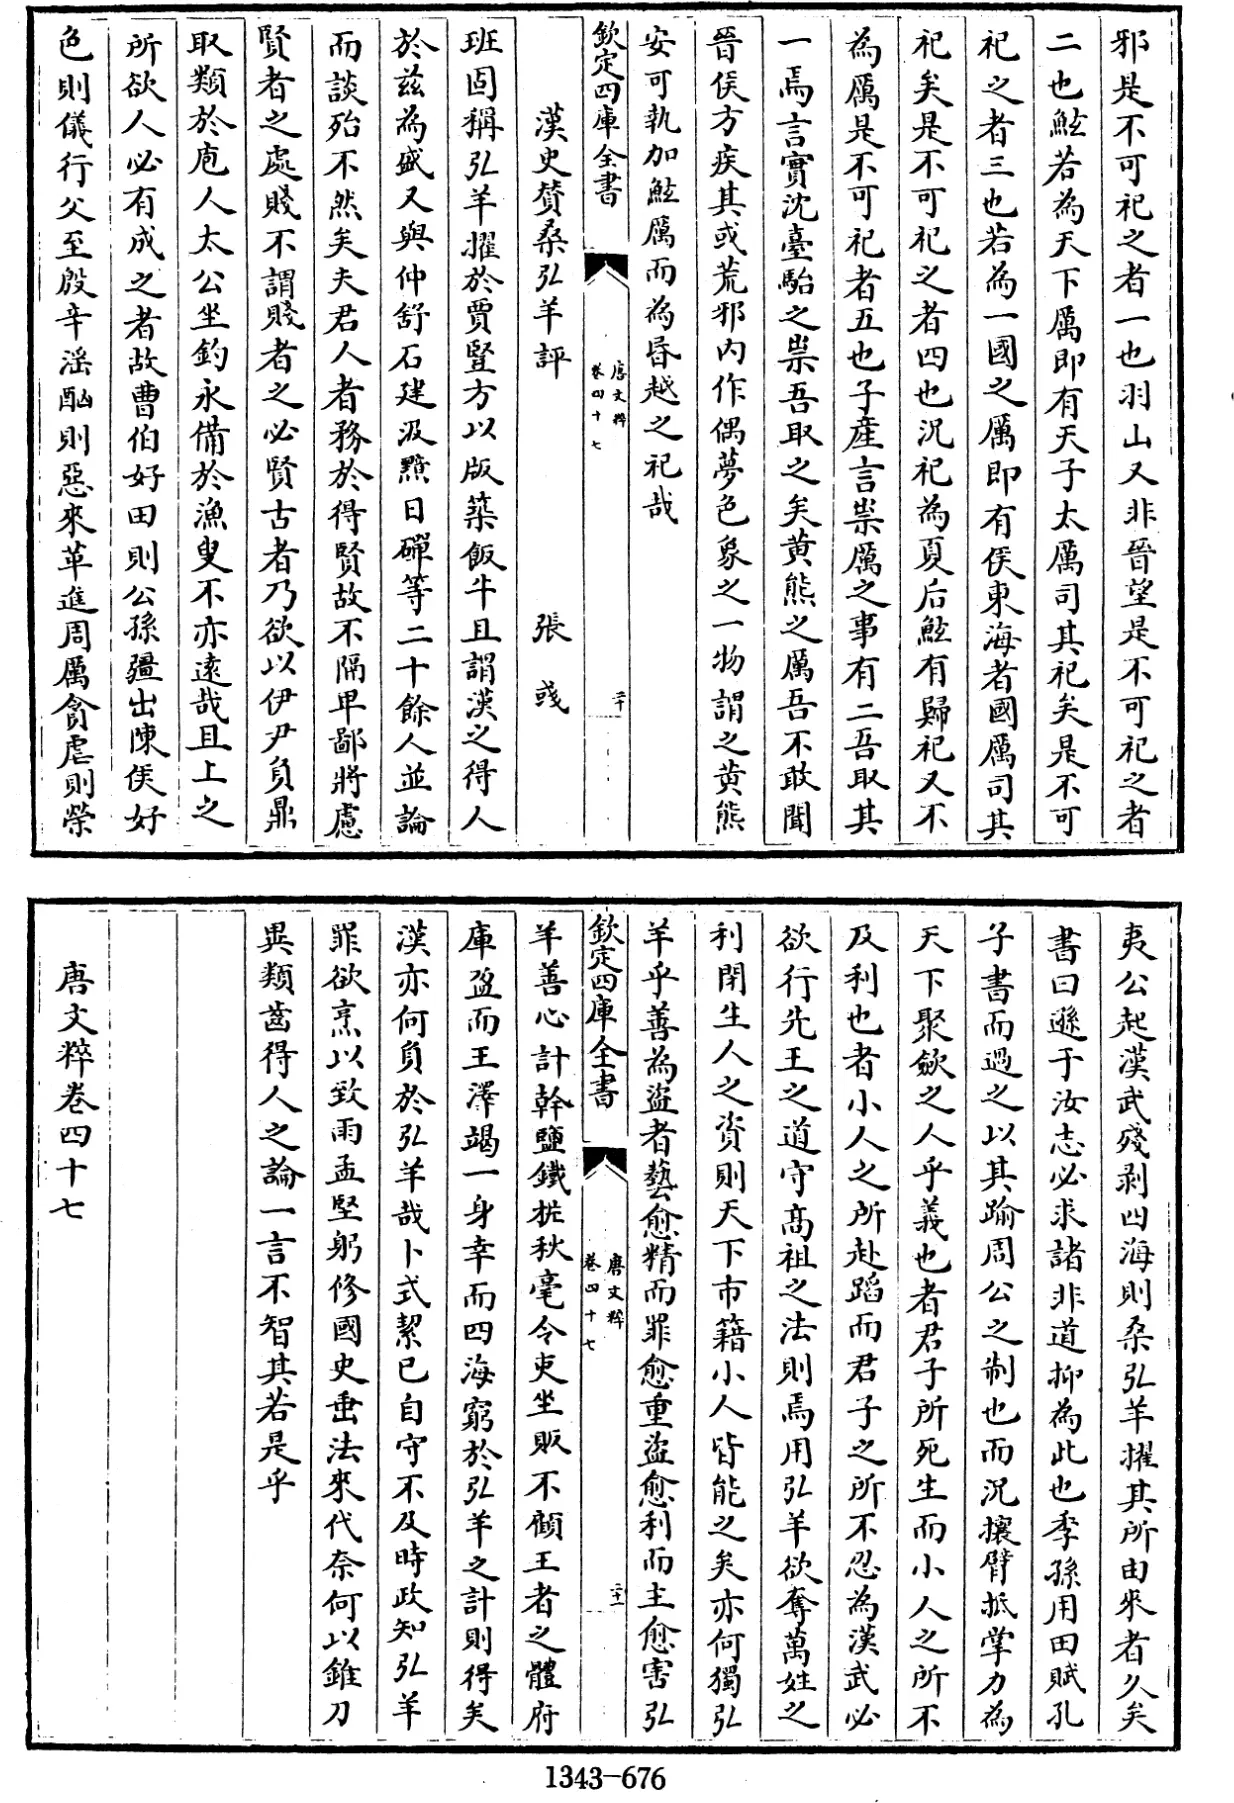 邪是不可祀之者一也羽山又非晉望是不可祀之者
二也鯀若為天下厲即有天子太厲司其祀矣是不可
祀之者三也若為一國之厲即有侯東海者國厲司其
祀矣是不可祀之者四也況祀為夏后鯀有歸祀又不
為厲是不可祀者五也子產言祟厲之事有二吾取其
一焉言實沈臺駘之祟吾取之矣黄熊之厲吾不敢聞
晉侯方疾其或荒邪内作偶夢色象之一物謂之黄熊
安可執加鯀厲而為晷越之祀哉
欽定四庫全書
唐文粹
卷四十七
二十
漢史贊桑弘羊評
張彧
班固稱弘羊擢於賈豎方以版築飯牛且謂漢之得人
於兹為盛又與仲舒石建汲黯日磾等二十餘人並論
而談殆不然矣夫君人者務於得賢故不隔卑鄙將慮
賢者之處賤不謂賤者之必賢古者乃欲以伊尹負鼎
取類於庖人太公坐釣永備於漁叟不亦逺哉且上之
所欲人必有成之者故曹伯好田則公孫彊出陳侯好
色則儀行父至殷辛滛酗則惡來革進周厲貪虐則榮
夷公起漢武殘剥四海則桑弘羊擢其所由來者久矣
書曰遜于汝志必求諸非道抑為此也季孫用田賦孔
子書而過之以其踰周公之制也而況攘臂抵掌力為
天下聚斂之人乎義也者君子所死生而小人之所不
及利也者小人之所赴蹈而君子之所不忍為漢武必
欲行先王之道守髙祖之法則焉用弘羊欲奪萬姓之
利閉生人之資則天下市籍小人皆能之矣亦何獨弘
羊乎善為盜者藝愈精而罪愈重盜愈利而主愈害弘
欽定四庫全書
唐文粹
卷四十七
二十一
羊善心計幹鹽鐵桃秋毫令吏坐販不顧王者之體府
庫盈而王澤竭一身幸而四海窮於弘羊之計則得矣
漢亦何負於弘羊哉卜式絜已自守不及時政知弘羊
罪欲烹以致雨孟堅躬修國史垂法來代奈何以錐刀
異類齒得人之論一言不智其若是乎
唐文粹卷四十七
1343-676